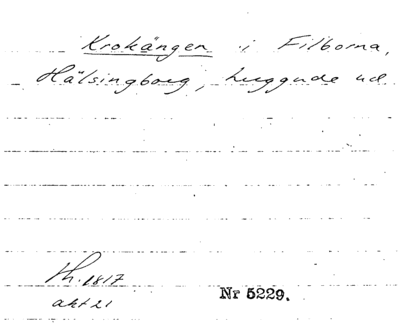 Krokängen i Filborna,
Hälsingborg, huggude ud
Th. 1817
akt 21
Nr 5229.